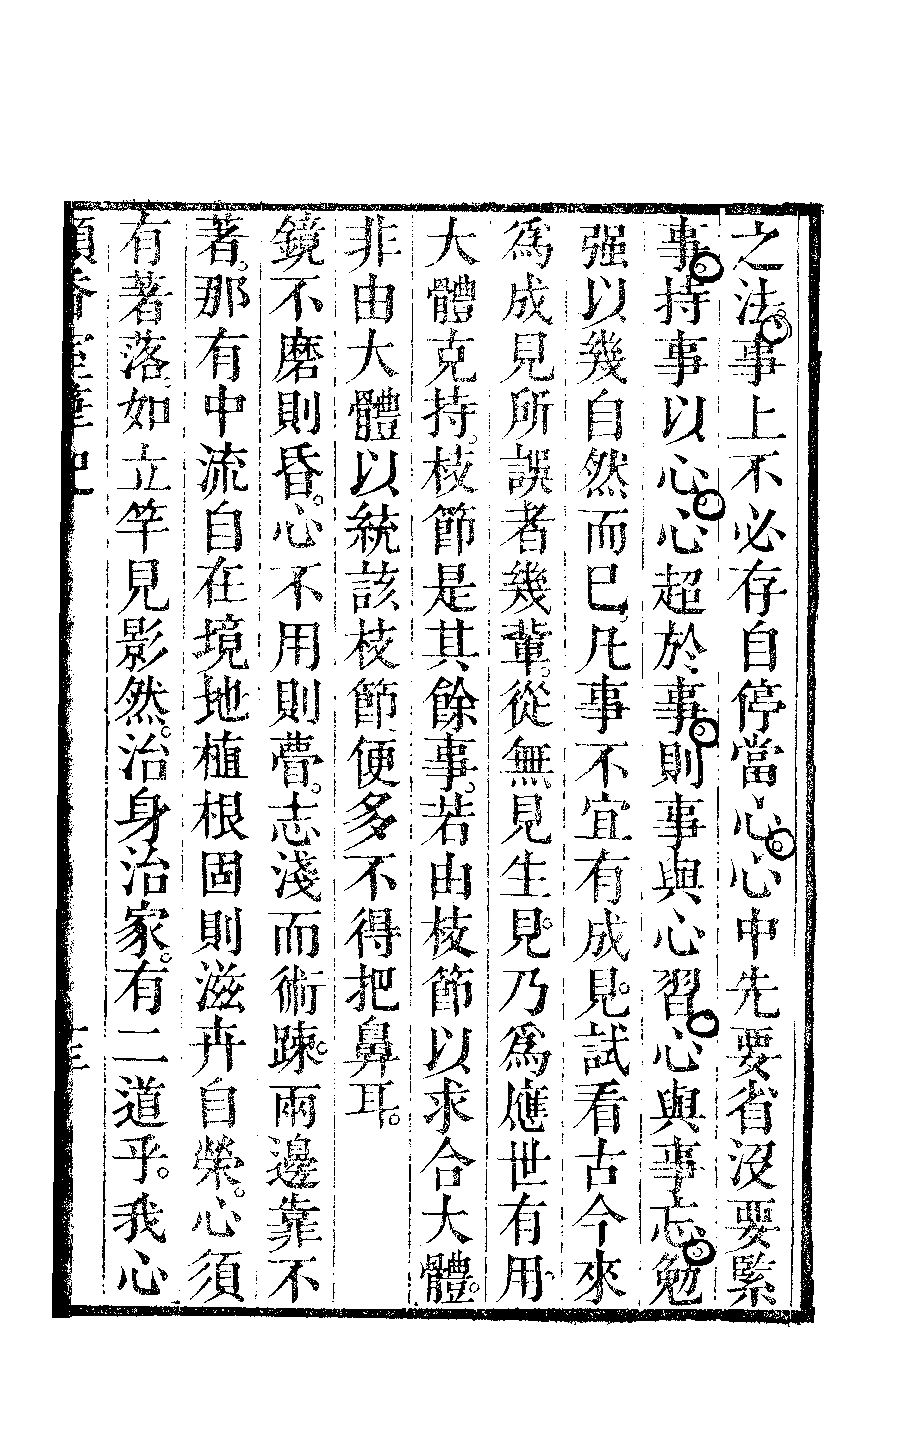 之法事上不必存自停當心心中先要省沒要緊
事持事以心心超於事則事與心習心與事忘勉
强以幾自然而已凡事不宜有成見試看古今來
爲成見所誤者幾輩從無見生見乃爲應世有用
大體克持枝節是其餘事若由枝節以求合大體
非由大體以統該枝節便多不得把鼻耳
鏡不磨則昏心不用則瞢志淺而術踈兩邊靠不
著那有中流自在境地植根固則滋卉自榮心須
有著落如立竿見影然治身治家有二道乎我心